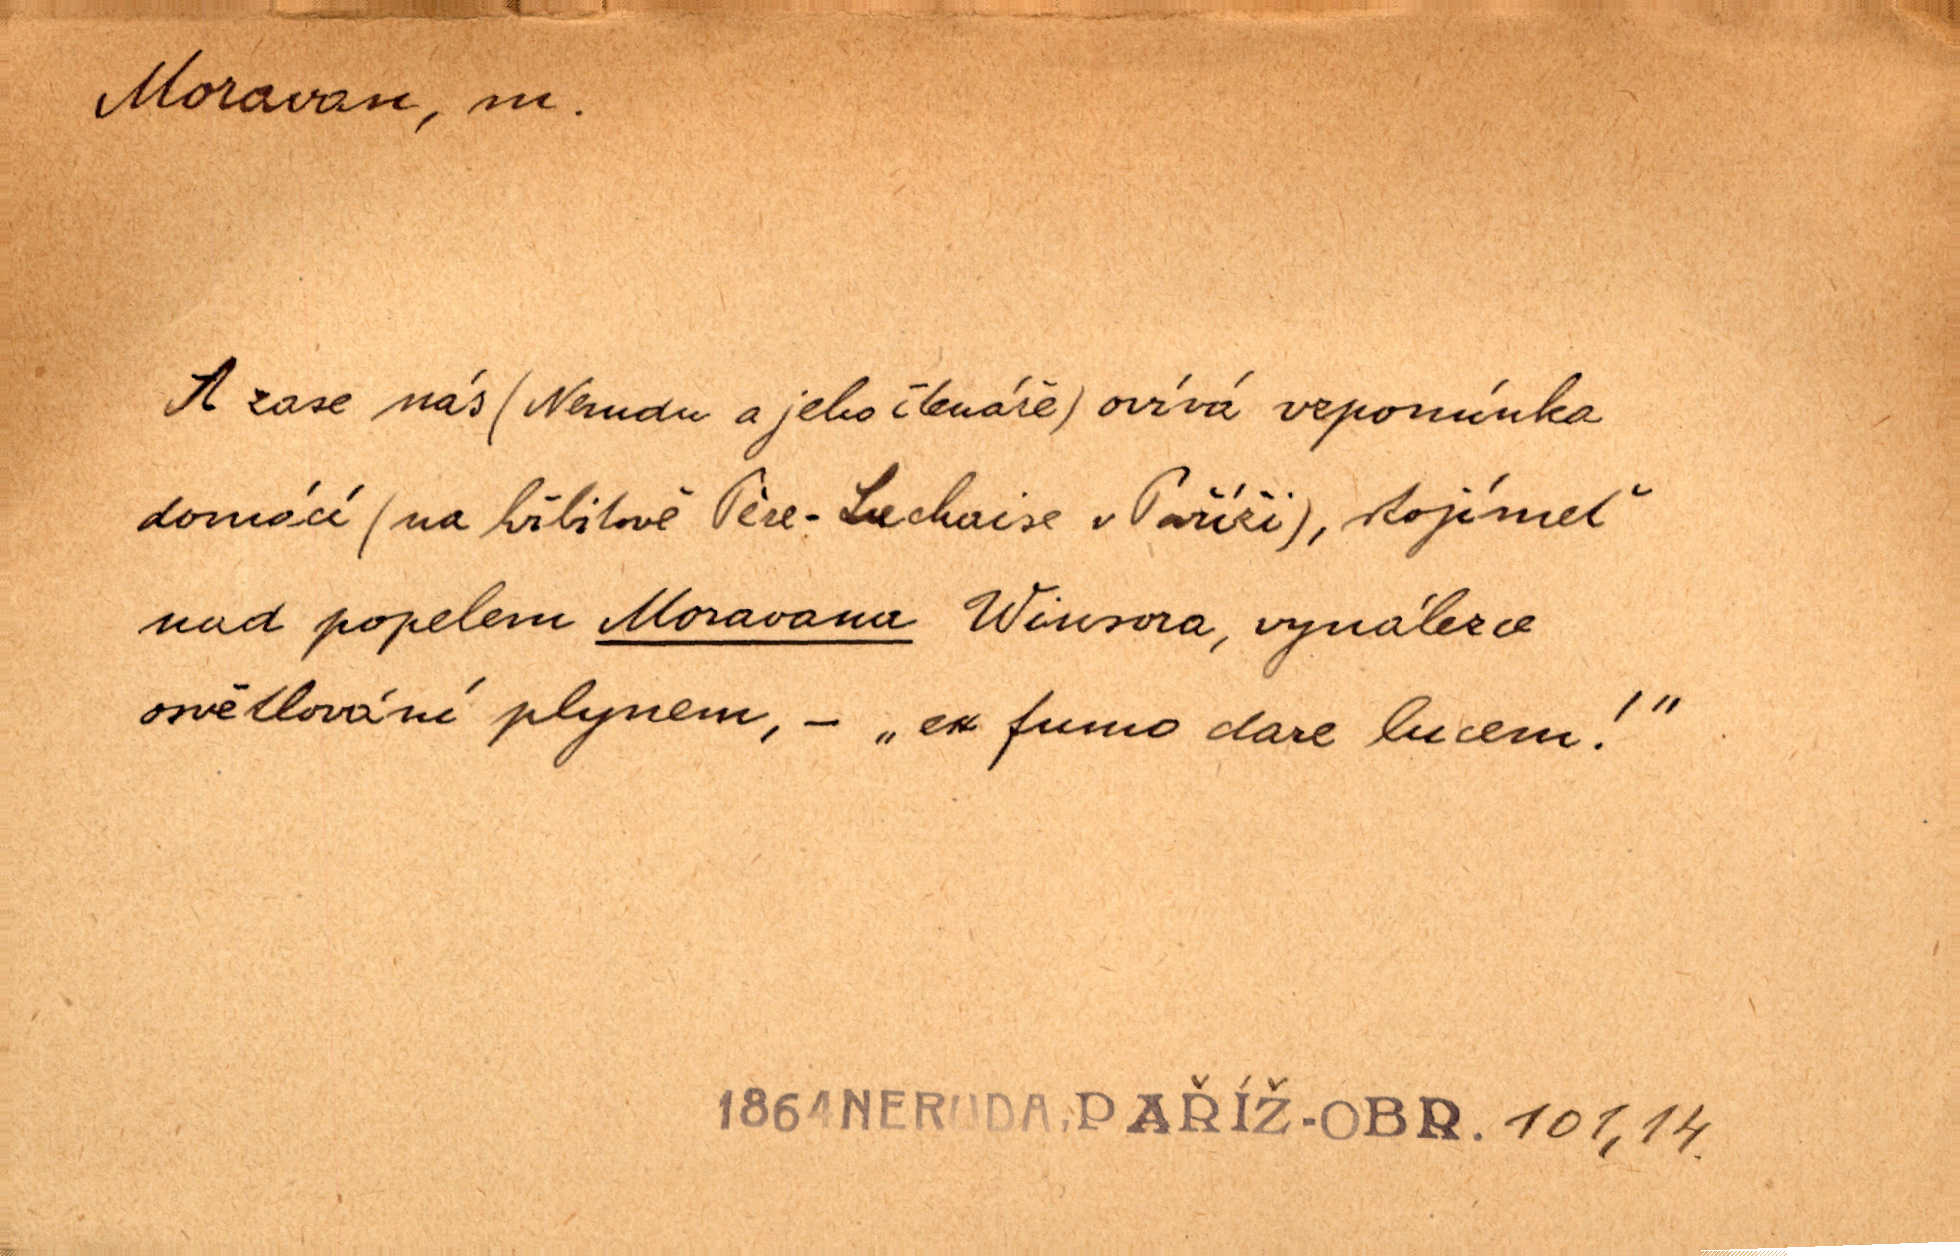 Moravan, m.
A zase nás (Nerudu a jeho čtenáře) ovívá vzpomínka
domácí (na hřbitově Père-Lachaise v Paříži), stojímeť
nad popelem Moravana Winsora, vynálezce
osvětlování plynem, – „ex fumo dare lucem!"
1864 NERUDA, PAŘÍŽ-OBR. 101,14.